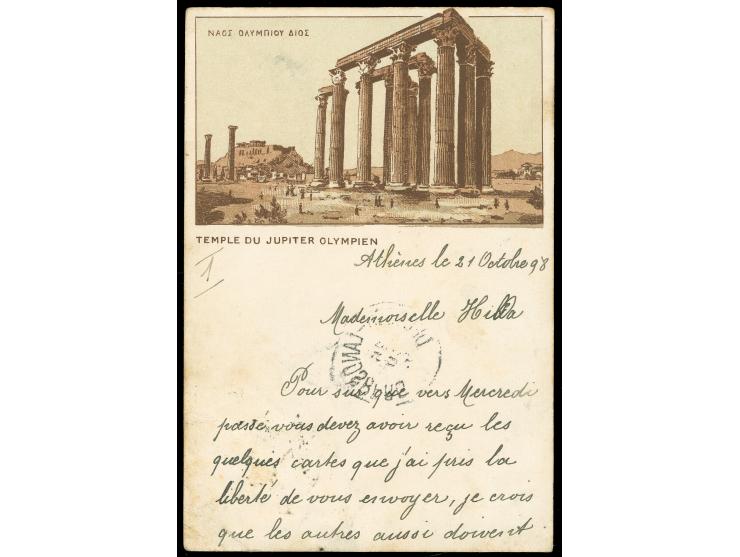 ΝΑΟΣ ΟΛΥΜΠΙΟΥ ΔΙΟΣ
TEMPLE DU JUPITER OLYMPIEN
1
Athènes le 21 Octobre 98
Mademoiselle Hilda
Pour sur que vers Mercredi
passé vous devez avoir reçu les
quelques cartes que j'ai pris la
liberté de vous envoyer, je crois
que les autres aussi doivent